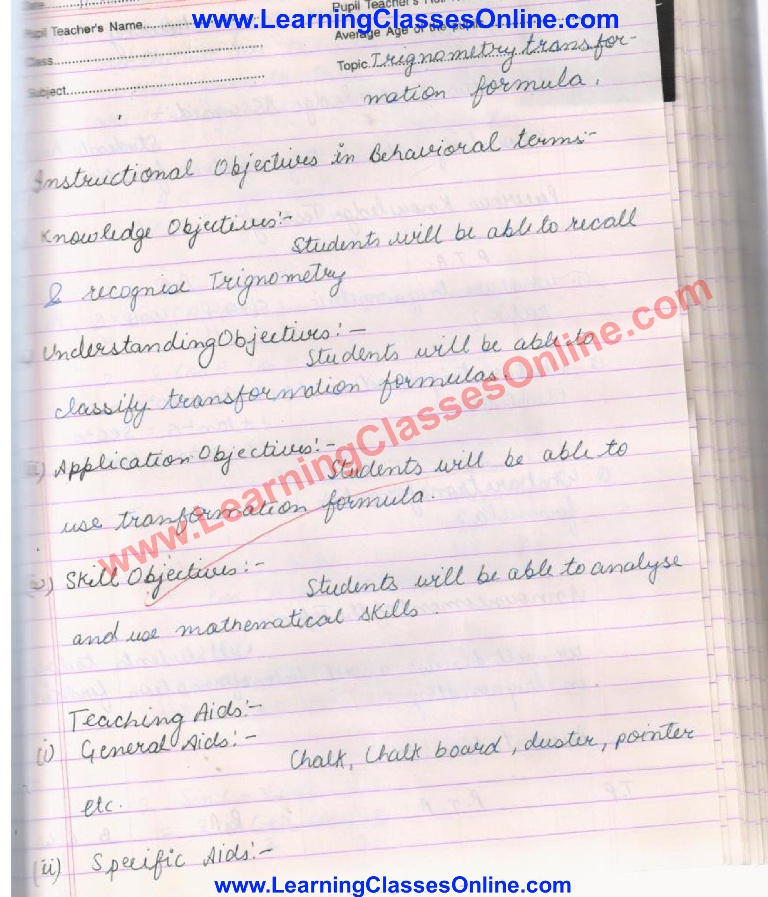 www.LearningClassesOnline.com
Date
Pupil Teacher's
Pupil Teacher's Name
Average Age of the pupil
Class
Topic Trignometry transfor-
Subject
mation formula.
Instructional Objectives in Behavioral terms:-
Knowledge Objectives:-
Students will be able to recall
& recognise Trignometry
Understanding Objectives:-
Students will be able to
classify transformation formulas.
iii) Application Objectives:-
Students will be able to
use tranformation formula.
www.LearningClassesOnline.com
iv) Skill Objectives:-
Students will be able to analyse
and use mathematical skills.
Teaching Aids:-
(i) General Aids:-
Chalk, Chalk board, duster, pointer
etc.
(ii) Specific Aids:-
www.LearningClassesOnline.com